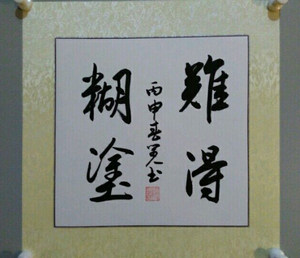 難得
糊塗
丙申春